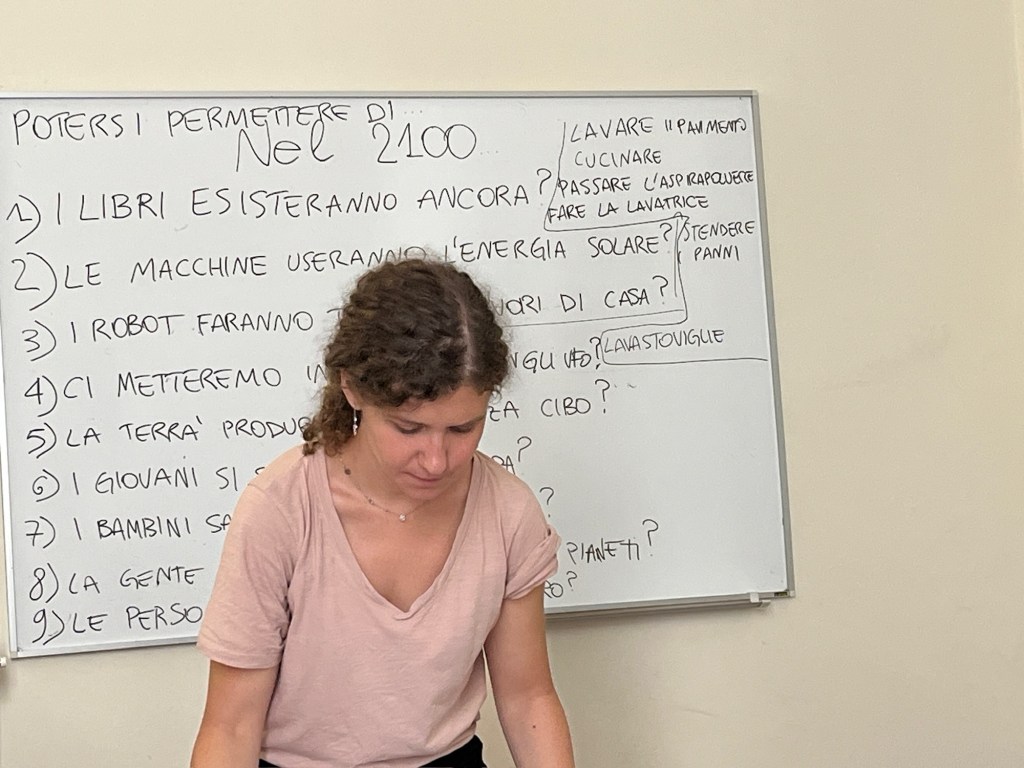 POTERSI PERMETTERE DI...
Nel 2100...
1) I LIBRI ESISTERANNO ANCORA?
2) LE MACCHINE USERANNO L'ENERGIA SOLARE?
3) I ROBOT FARANNO DI CASA?
4) CI METTEREMO
5) LA TERRA' CIBO?
6) I GIOVANI SI
7) I BAMBINI
8) LA GENTE PIANETI?
9) LE
LAVARE Il PAVIMENTO
CUCINARE
PASSARE L'ASPIRAPOLVERE
FARE LA LAVATRICE
STENDERE
PANNI
LAVASTOVIGLIE